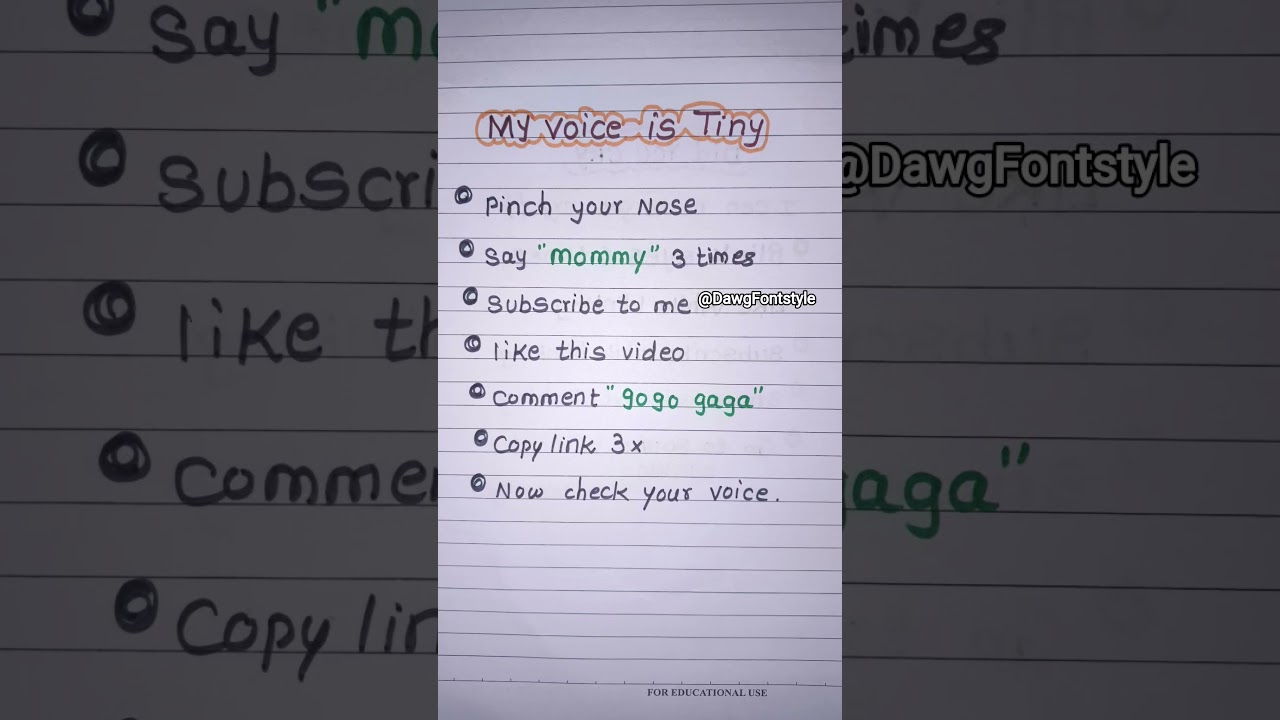 My voice is Tiny
Pinch your Nose
Say "mommy" 3 times
Subscribe to me @DawgFontstyle
like this video
Comment "gogo gaga"
Copy link 3x
Now check your voice.
FOR EDUCATIONAL USE
Say "m
imes
@DawgFontstyle
Subscri
like th
Comme
aga"
Copy lin